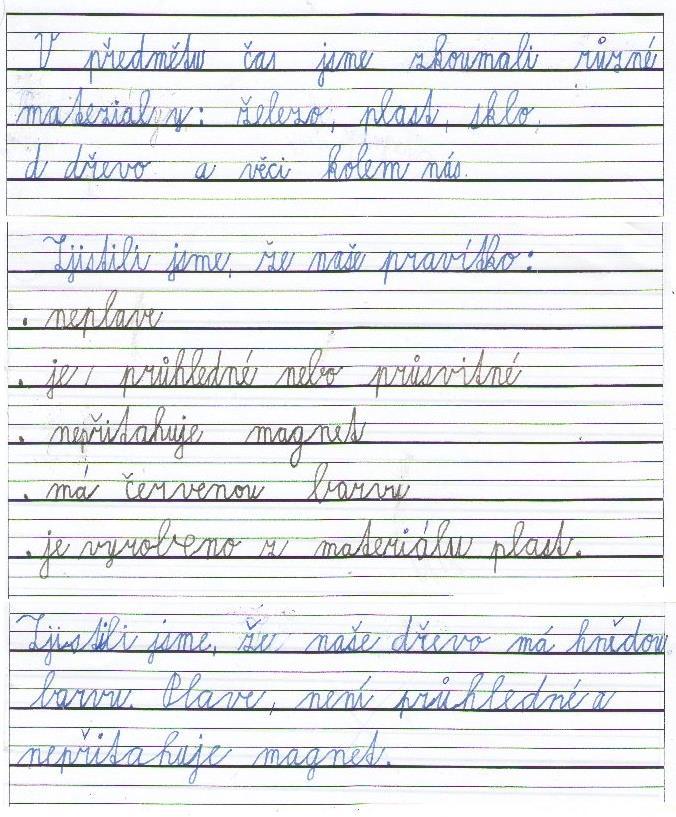 V předmětu čas jsme zkoumali různé
materiály: železo, plast, sklo,
d dřevo a věci kolem nás.
Zjistili jsme, že naše pravítko:
. neplave
. je průhledné nebo průsvitné
. nepřitahuje magnet
. má červenou barvu
. je vyrobeno z materiálu plast.
Zjistili jsme, že naše dřevo má hnědou
barvu. Plave, není průhledné a
nepřitahuje magnet.